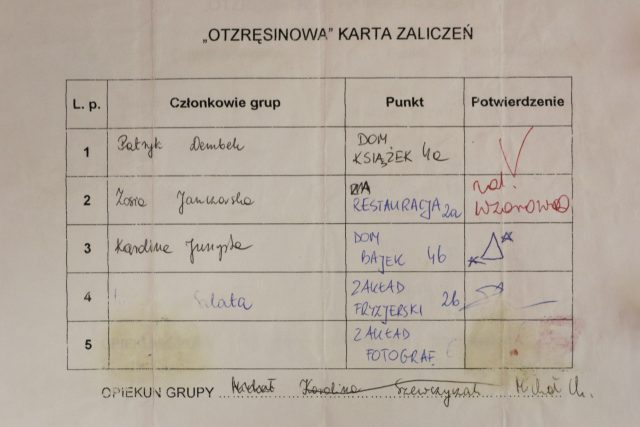 „OTZRĘSINOWA” KARTA ZALICZEŃ
L. p. Członkowie grup Punkt Potwierdzenie
1 Patryk Dembek DOM KSIĄŻEK 4a
2 Zosia RESTAURACJA 2a zal. wzorowo
3 Karolina DOM BAJEK 4b
4 ZAKŁAD FRYZJERSKI 2b
5 ZAKŁAD FOTOGRAF
OPIEKUN GRUPY Michał Karolina Szewczyk Michał Ch.